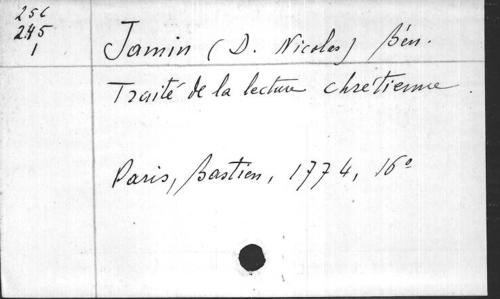 256
245
1
Jamin (D. Nicolas) Bén.
Traité de la lecture chrétienne.
Paris, Bastien, 1774, 16°